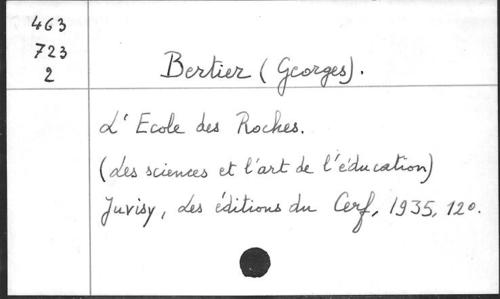 463
723
2
Bertier (Georges).
L'Ecole des Roches.
(Les sciences et l'art de l'éducation)
Juvisy, Les éditions du Cerf, 1935, 12o.